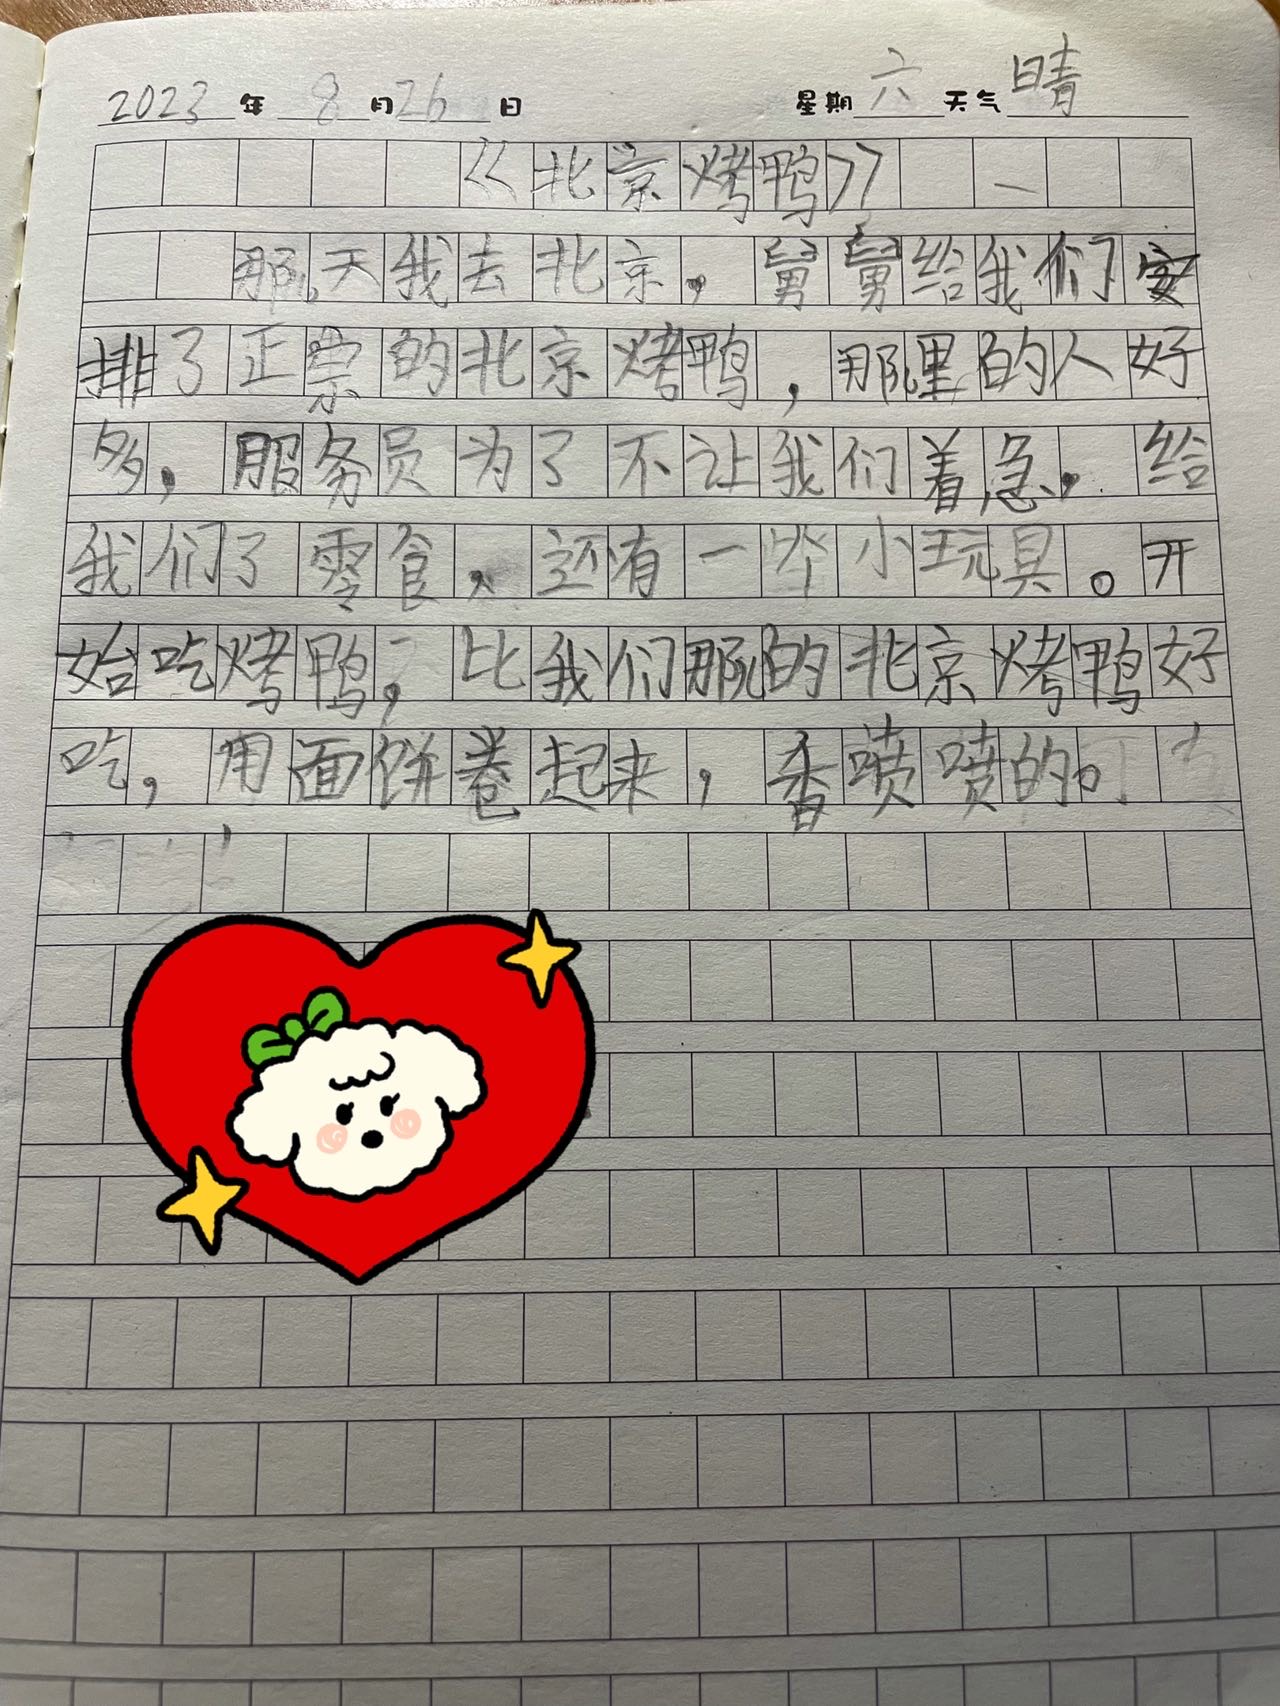 2023年 8月26日 星期六 天气晴
《北京烤鸭》
那天我去北京,舅舅给我们安
排了正票的北京烤鸭,那里的人好
多,服务员为了不让我们着急,给
我们了零食,还有一些小玩具。开
始吃烤鸭,比我们那的北京烤鸭好
吃,用面饼卷起来,香喷喷的。